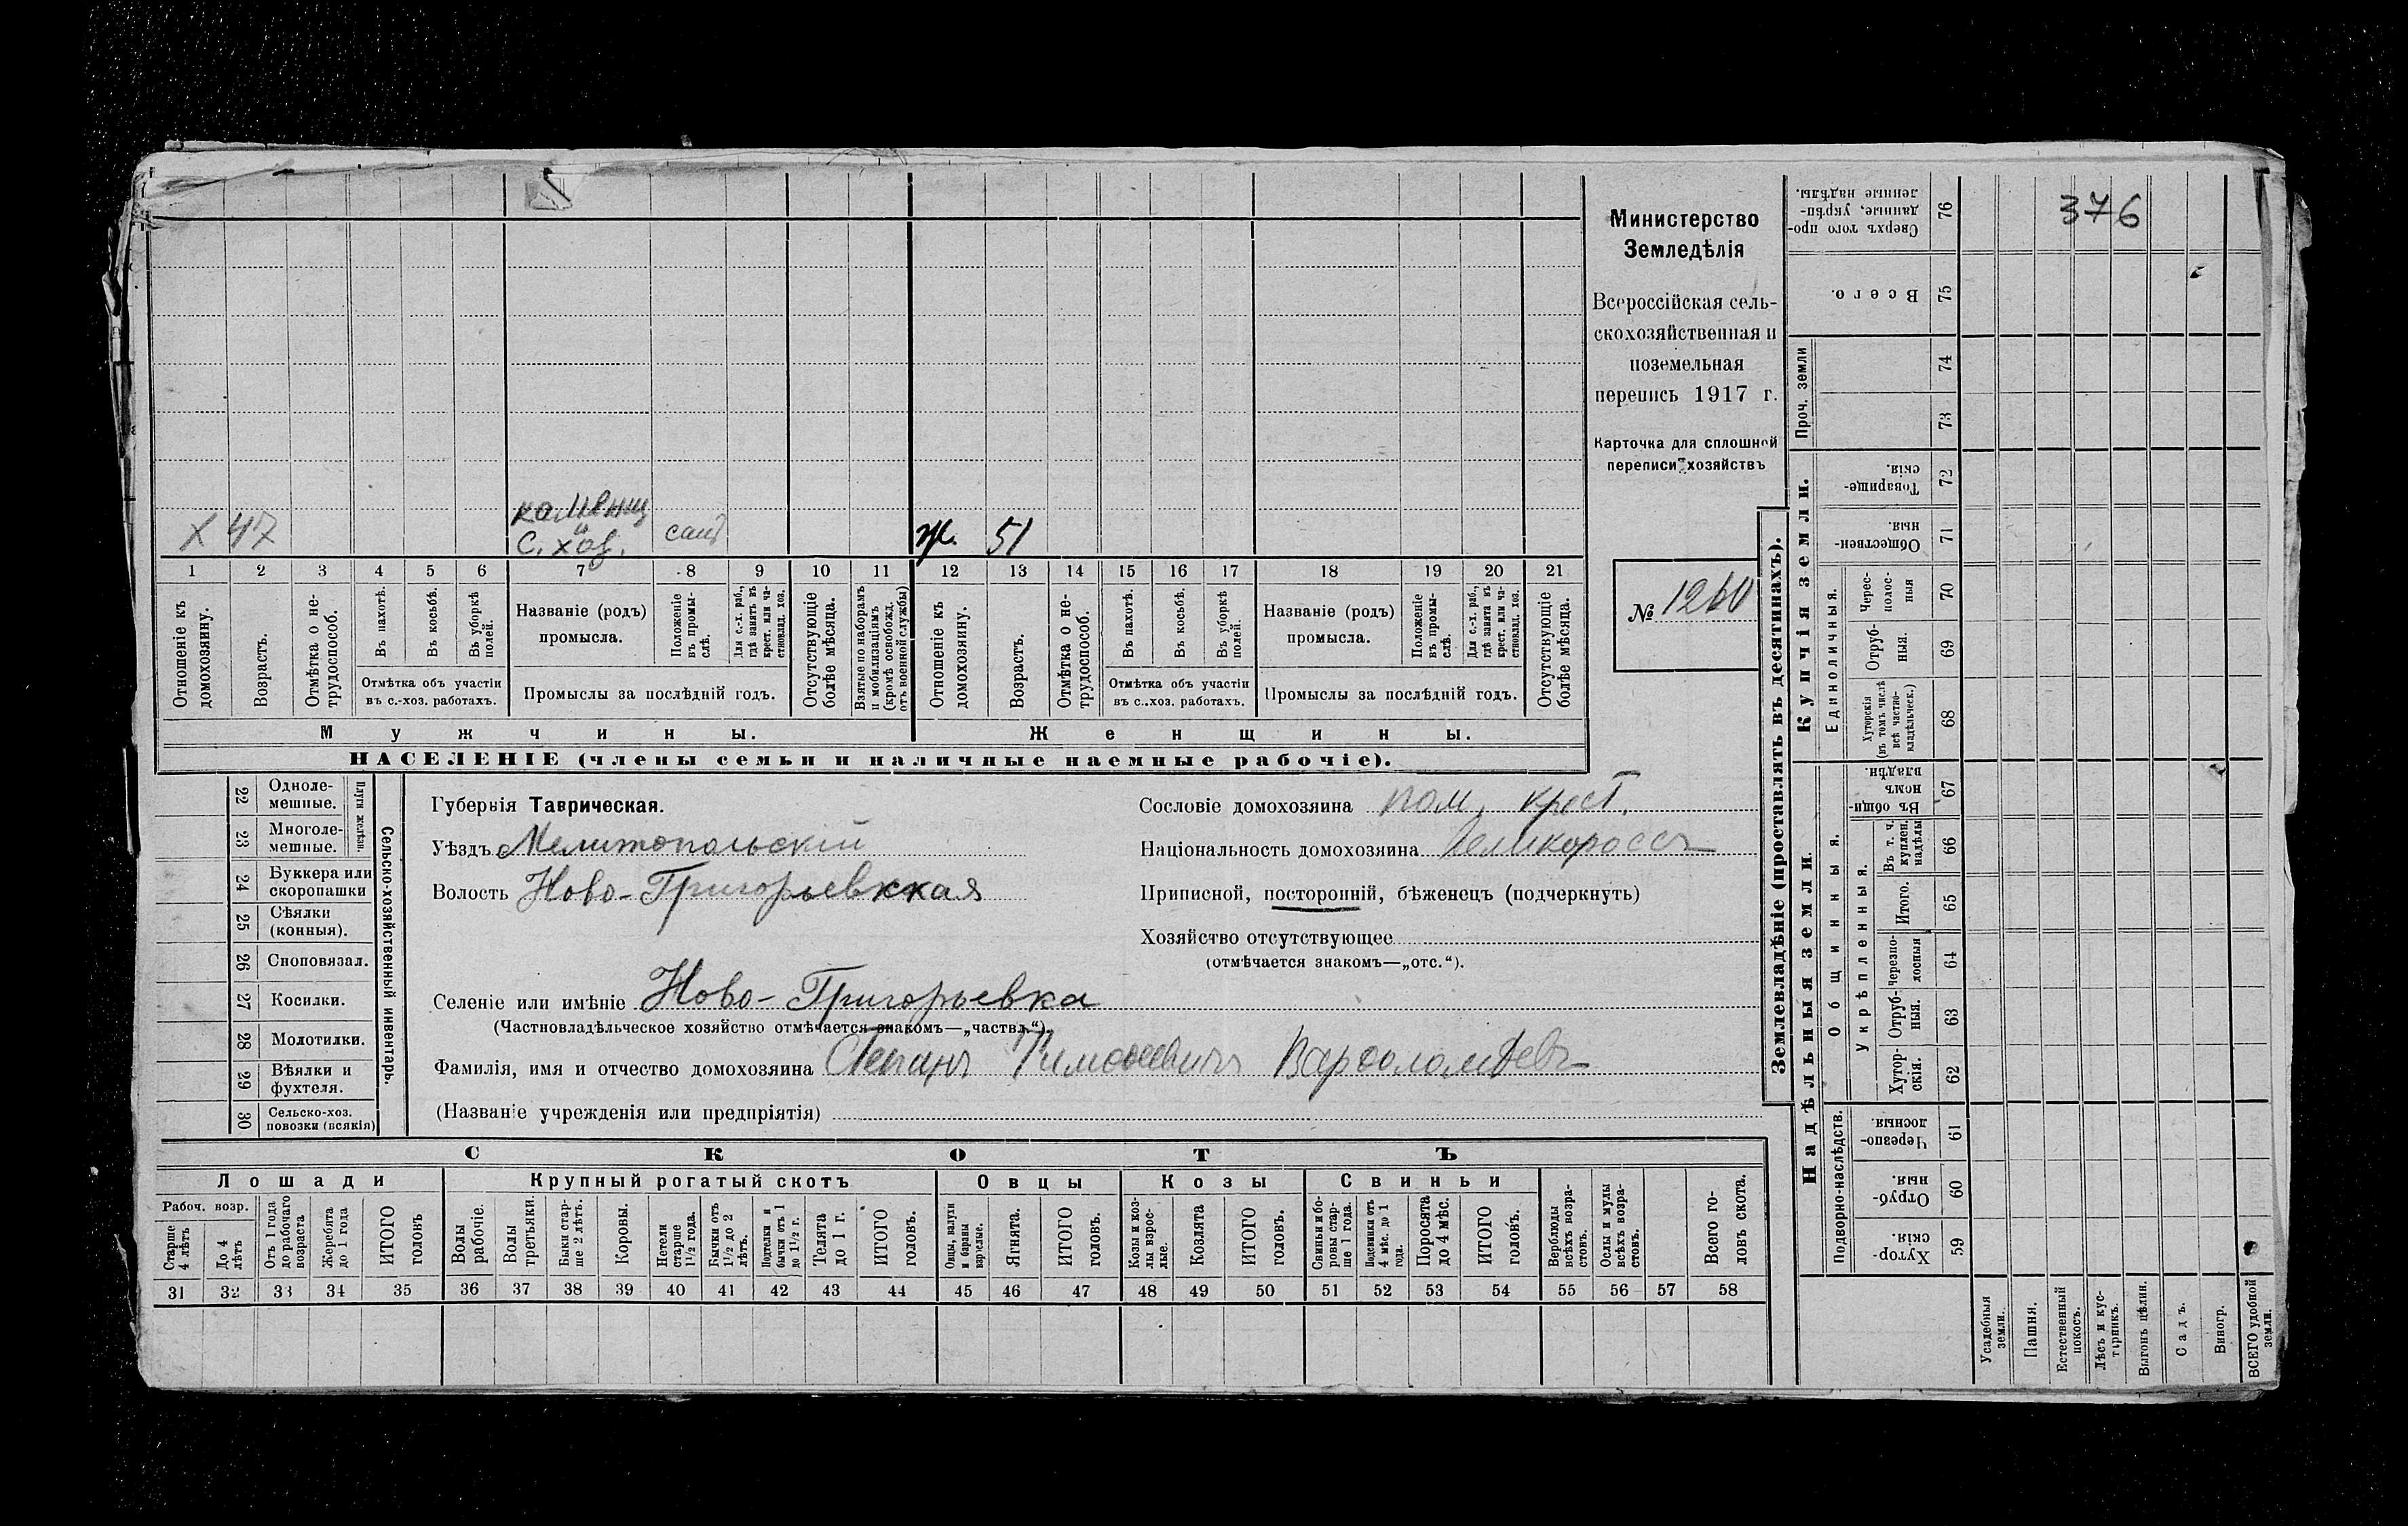 376
Министерство
Земледѣлія
Всероссійская сель-
скохозяйственная и
поземельная
перепись 1917 г.
Карточка для сплошной
переписи хозяйствъ
№ 1260
X 47
каменщ
и
с. хоз.
сам
ж. 51
1 2 3 4 5 6 7 8 9 10 11 12 13 14 15 16 17 18 19 20 21
Отношеніе къ домохозяину.
Возрастъ.
Отмѣтка о не-трудоспособ.
Въ пахотѣ.
Въ косьбѣ.
Въ уборкѣ полей.
Отмѣтка объ участіи
въ с.-хоз. работахъ.
Названіе (родъ)
промысла.
Положеніе въ промы-слѣ.
Для с.-х. раб., гдѣ занятъ въ крест. или ча-стновлад. хоз.
Промыслы за послѣдній годъ.
Отсутствующіе болѣе мѣсяца.
Взятые по наборамъ и мобилизаціямъ (кромѣ освобожд. отъ военной службы)
Отношеніе къ домохозяину.
Возрастъ.
Отмѣтка о не-трудоспособ.
Въ пахотѣ.
Въ косьбѣ.
Въ уборкѣ полей.
Отмѣтка объ участіи
въ с.-хоз. работахъ.
Названіе (родъ)
промысла.
Положеніе въ промы-слѣ.
Для с.-х. раб., гдѣ занята въ крест. или ча-стновлад. хоз.
Промыслы за послѣдній годъ.
Отсутствующіе болѣе мѣсяца.
Мужчины.
Женщины.
НАСЕЛЕНІЕ (члены семьи и наличные наемные рабочіе).
22 Одноле-мешные.
23 Многоле-мешные.
Плуги желѣзн.
24 Буккера или скоропашки
25 Сѣялки (конныя).
26 Сноповязал.
27 Косилки.
28 Молотилки.
29 Вѣялки и фухтеля.
30 Сельско-хоз. повозки (всякія)
Сельско-хозяйственный инвентарь.
Губернія Таврическая.
Уѣздъ Мелитопольскій
Волость Ново-Григорьевкская
Селеніе или имѣніе Ново-Григорьевка
(Частновладѣльческое хозяйство отмѣчается знакомъ—„частвл.“).
Фамилія, имя и отчество домохозяина Степанъ Тимофеевичъ Варфоломѣевъ
(Названіе учрежденія или предпріятія)
Сословіе домохозяина крест.
Національность домохозяина Великороссъ
Приписной, посторонній, бѣженецъ (подчеркнуть)
Хозяйство отсутствующее
(отмѣчается знакомъ—„отс.“).
СКОТЪ
Лошади
Крупный рогатый скотъ
Овцы
Козы
Свиньи
Рабоч. возр.
Старше 4 лѣтъ
До 4 лѣтъ
Отъ 1 года до рабочаго возраста
Жеребята до 1 года
ИТОГО головъ
Волы рабочіе.
Волы третьяки.
Быки стар-ше 2 лѣтъ.
Коровы.
Нетели старше 1 1/2 года.
Бычки отъ 1 1/2 до 2 лѣтъ.
Подтелки и бычки отъ 1 до 1 1/2 г.
Телята до 1 г.
ИТОГО головъ.
Овцы, валухи и бараны взрослые.
Ягнята.
ИТОГО головъ.
Козы и коз-лы взрос-лые.
Козлята
ИТОГО головъ.
Свиньи и бо-ровы стар-ше 1 года.
Подсвинки отъ 4 мѣс. до 1 года.
Поросята до 4 мѣс.
ИТОГО головъ.
Верблюды всѣхъ возра-стовъ.
Ослы и мулы всѣхъ возра-стовъ.
Всего го-ловъ скота.
31 32 33 34 35 36 37 38 39 40 41 42 43 44 45 46 47 48 49 50 51 52 53 54 55 56 57 58
Землевладѣніе (проставлять въ десятинахъ).
Надѣльныя земли.
Купчія земли.
Проч. земли
Подворно-наслѣдств.
Общинныя.
Укрѣпленныя.
Единоличныя.
Хутор-скія. 59
Отруб-ныя. 60
Черезпо-лосныя. 61
Хутор-скія. 62
Отруб-ныя. 63
Черезпо-лосныя 64
Итого. 65
Въ т. ч. куплен. надѣлы 66
Въ общи-номъ владѣн. 67
Хуторскія (въ томъ числѣ всѣ частно-владѣльческ.) 68
Отруб-ныя. 69
Черес-полос-ныя 70
Обществен-ныя. 71
Товарище-скія. 72
73
74
Всего. 75
Сверхъ того про-данные, укрѣп-ленные надѣлы. 76
Усадебныя земли.
Пашня.
Естественный покосъ.
Лѣсъ и кус-тарникъ.
Выгонъ цѣлин.
Садъ.
Виногр.
ВСЕГО удобной земли.